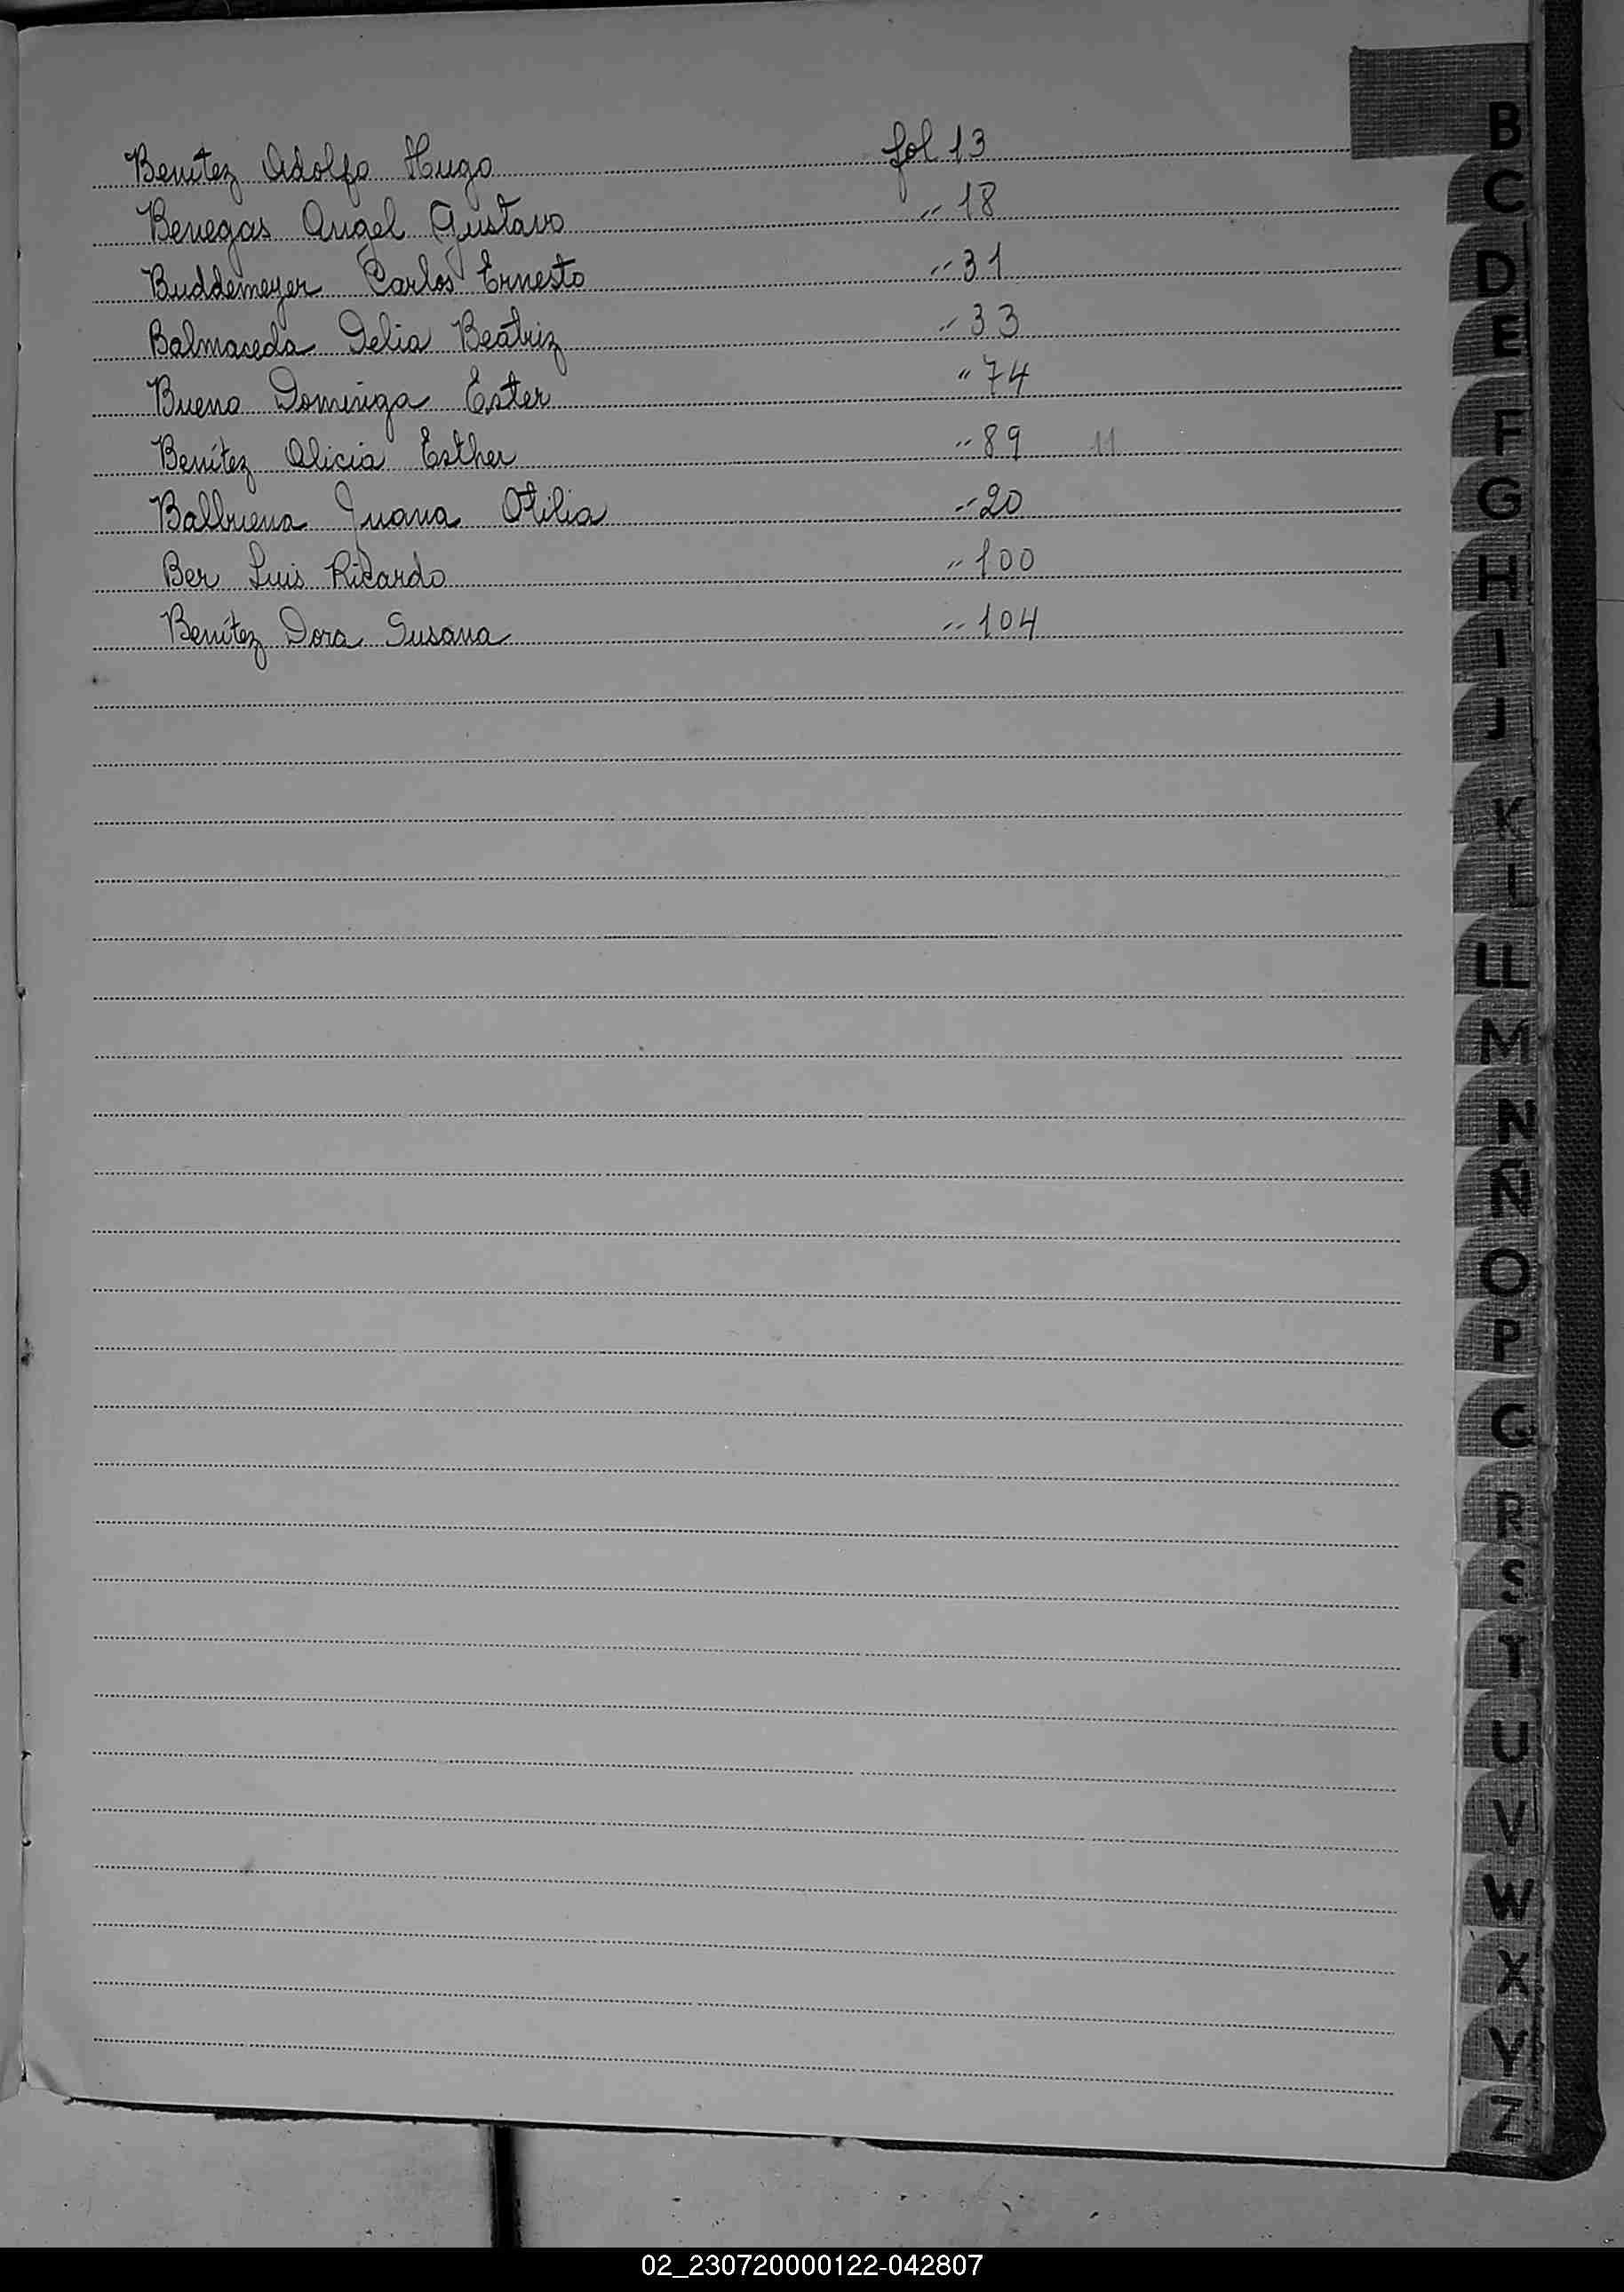 Benítez Adolfo Hugo fol 13
Benegas Angel Gustavo -- 18
Buddemeyer Carlos Ernesto -- 31
Balmaceda Delia Beatriz -- 33
Bueno Dominga Ester " 74
Benítez Alicia Esther -- 89 11
Balbuena Juana Otilia -- 20
Ber Luis Ricardo -- 100
Benítez Dora Susana -- 104
B
C
D
E
F
G
H
I
J
K
L
LL
M
N
Ñ
O
P
Q
R
S
T
U
V
W
X
Y
Z
02_230720000122-042807